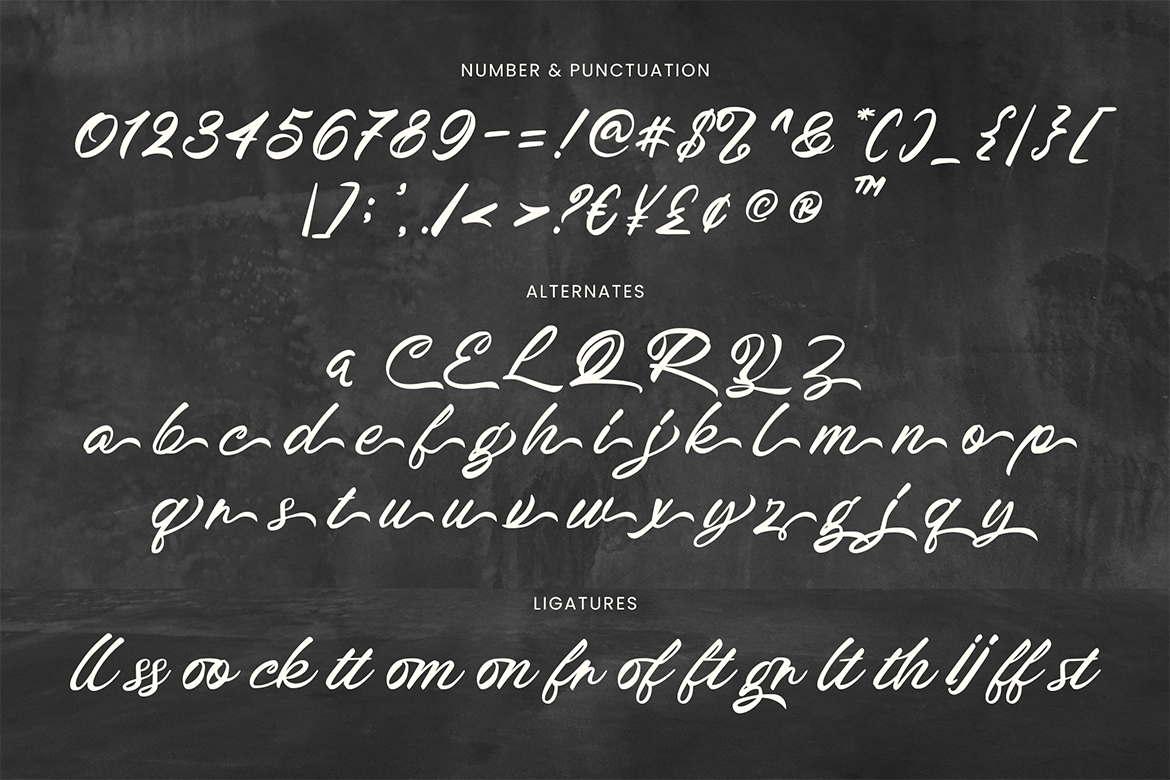 NUMBER & PUNCTUATION
0123456789-=!@#$%^&*()_{|}[
\];',./<>?€¥£¢©®™
ALTERNATES
a C E L Q R Y Z
a b c d e f g h i j k l m n o p
q r s t u u v w x y z g j q y
LIGATURES
ll ss oo ck tt om on fr of ft gr lt th ij ff st